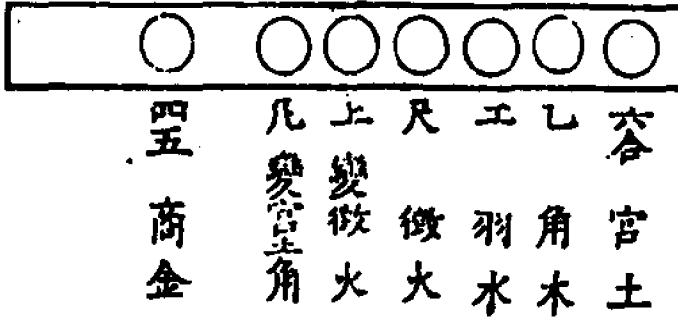 六合 宮 土
乙 角 木
工 羽 水
尺 徵 火
上 變徵 火
凡 變宮 土角
四五 商 金